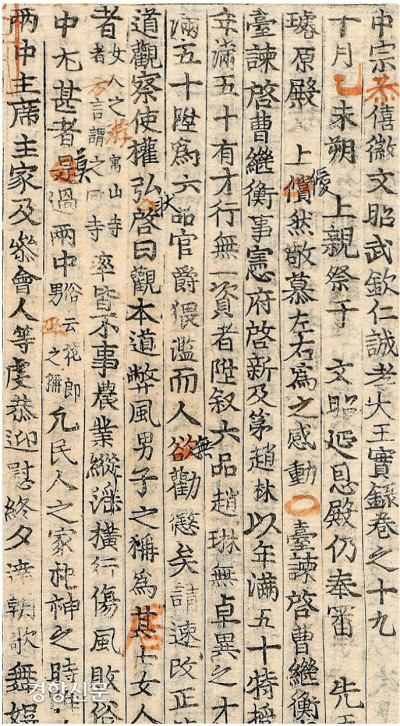 中宗恭僖徽文昭武欽仁誠孝大王實錄卷之十九
十月己未朔 上親祭于 文昭延恩殿仍奉審 先
璿原殿 上僾然敬慕左右爲之感動○臺諫啓曺繼衡
臺諫啓曺繼衡事憲府啓新及第趙琳以年滿五十特授
年滿五十有才行無一資者陞叙六品趙琳無卓異之才
滿五十陞爲六品官爵猥濫而人無勸懲矣請速改正
道觀察使權弘啓曰觀本道弊風男子之稱爲居士女人
者女人之游寓山寺者方言謂之回寺率皆不事農業縱淫橫行傷風敗俗
中尤甚者莫過兩中俗云花郎男巫之稱凡民人之家祀神之時
兩中主席主家及參會人等虔恭迎慰終夕達朝歌舞娛
경향신문